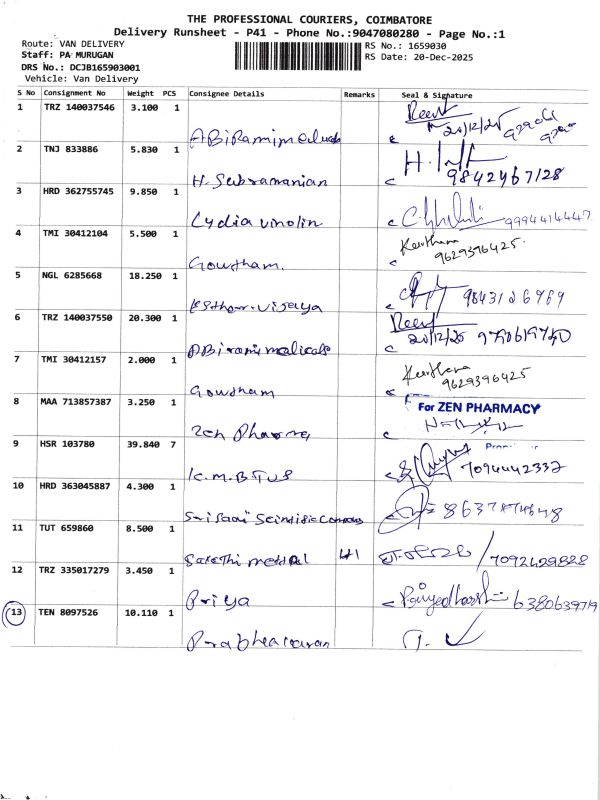 THE PROFESSIONAL COURIERS, COIMBATORE
Delivery Runsheet - P41 - Phone No.:9047080280 - Page No.:1
Route: VAN DELIVERY
RS No.: 1659030
Staff: PA MURUGAN
RS Date: 20-Dec-2025
DRS No.: DCJB165903001
Vehicle: Van Delivery
S No Consignment No Weight PCS Consignee Details Remarks Seal & Signature
1 TRZ 140037546 3.100 1 ABiRamimedicals 20/12/25
2 TNJ 833886 5.830 1 H. Subramanian 9842467128
3 HRD 362755745 9.850 1 Lydia vinolin 9994414447
4 TMI 30412104 5.500 1 Gowtham. Keerthana 9629396425
5 NGL 6285668 18.250 1 Esther. Vijaya
6 TRZ 140037550 20.300 1 ABiramimedicals 20/12/25
7 TMI 30412157 2.000 1 Gowtham Keerthana 9629396425
8 MAA 713857387 3.250 1 Zen Pharma For ZEN PHARMACY
9 HSR 103780 39.840 7 K.M.B TUS 7094442337
10 HRD 363045887 4.300 1
11 TUT 659860 8.500 1 Sakthi medical 7092429828
12 TRZ 335017279 3.450 1 Priya 6380639719
13 TEN 8097526 10.110 1 Prabhakaran